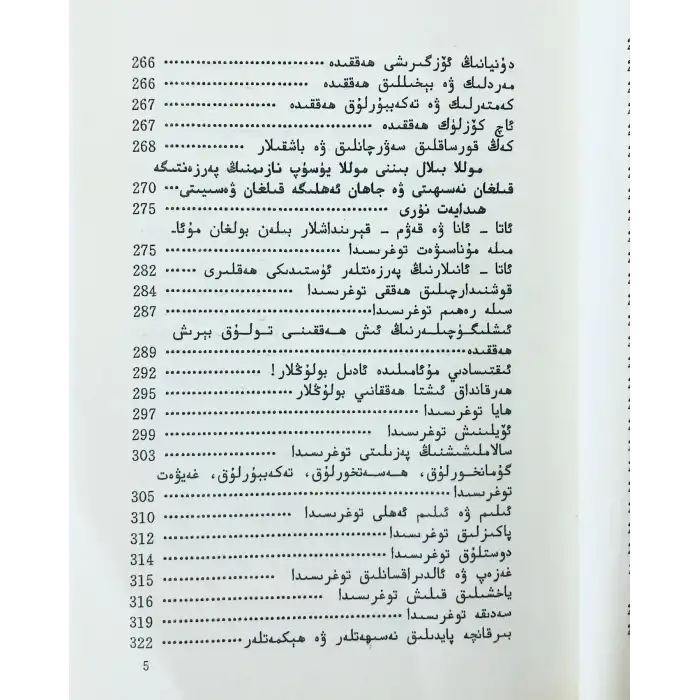 دۇنيانىڭ ئۆزگىرىشى ھەققىدە ................................ 266
مەردلىك ۋە بېخىللىق ھەققىدە ............................ 266
كەمتەرلىك ۋە تەكەببۇرلۇق ھەققىدە ...................... 267
ئاچ كۆزلۈك ھەققىدە ........................................ 267
كەڭ قورساقلىق سەۋرچانلىق ۋە باشقىلار ................ 268
موللا بىلال بىننى موللا يۈسۈپ نازىمنىڭ پەرزەنتىگە
قىلغان نەسىھىتى ۋە جاھان ئەھلىگە قىلغان ۋەسىيىتى... 270
ھىدايەت نۇرى ............................................ 275
ئاتا – ئانا ۋە قەۋم – قېرىنداشلار بىلەن بولغان مۇئا-
مىلە مۇناسىۋەت توغرىسىدا ................................ 275
ئاتا – ئانىلارنىڭ پەرزەنتلەر ئۈستىدىكى ھەقلىرى ...... 282
قوشنىدارچىلىق ھەققى توغرىسىدا .......................... 284
سىلە رەھىم توغرىسىدا........................................ 287
ئىشلىگۈچىلەرنىڭ ئىش ھەققىنى تولۇق بېرىش
ھەققىدە...................................................... 289
ئىقتىسادىي مۇئامىلىدە ئادىل بولۇڭلار! .................. 292
ھەرقانداق ئىشتا ھەققانىي بولۇڭلار........................ 295
ھايا توغرىسىدا................................................ 297
ئۆيلىنىش توغرىسىدا ........................................ 299
سالاملىشىشنىڭ پەزىلىتى توغرىسىدا ...................... 303
گۇمانخورلۇق، ھەسەتخورلۇق، تەكەببۇرلۇق، غەيۋەت
توغرىسىدا.................................................... 305
ئىلىم ۋە ئىلىم ئەھلى توغرىسىدا .......................... 310
پاكىزلىق توغرىسىدا............................................ 312
دوستلۇق توغرىسىدا............................................ 314
غەزەپ ۋە ئالدىراقسانلىق توغرىسىدا ...................... 315
ياخشىلىق قىلىش توغرىسىدا ................................ 316
سەدىقە توغرىسىدا............................................ 319
بىرقانچە پايدىلىق نەسىھەتلەر ۋە ھېكمەتلەر................ 322
5